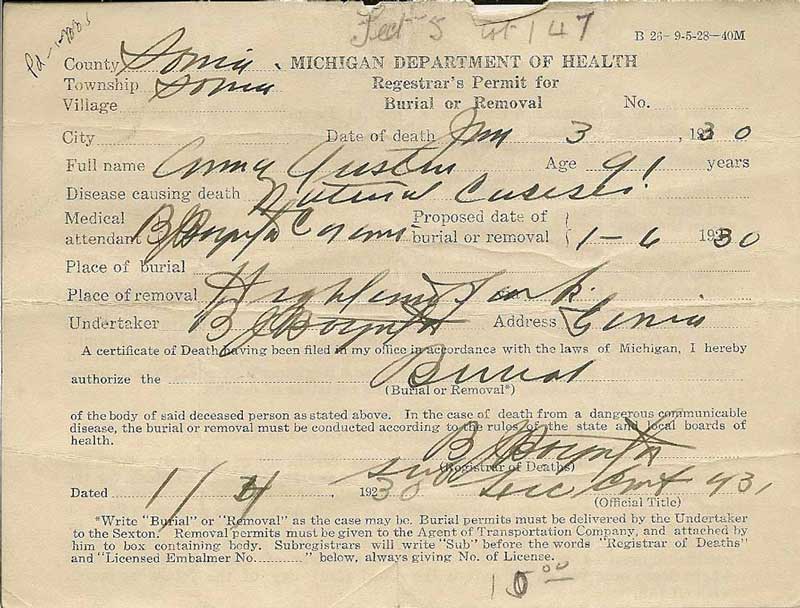 Pd -
Sect 5 Lot 147
B 26-9-5-28-40M
County Ionia
MICHIGAN DEPARTMENT OF HEALTH
Township Ionia
Regestrar's Permit for
Village
Burial or Removal No.
City Date of death Jan 3, 1930
Full name Anna Austin Age 91 years
Disease causing death Natural Causes.
Medical
attendant B J Boynton Coroner
Proposed date of
burial or removal 1-6 1930
Place of burial
Place of removal Highland Park.
Undertaker B J Boynton Address Ionia
A certificate of Death having been filed in my office in accordance with the laws of Michigan, I hereby
authorize the Burial
(Burial or Removal*)
of the body of said deceased person as stated above. In the case of death from a dangerous communicable
disease, the burial or removal must be conducted according to the rules of the state and local boards of
health.
B J Boynton
Sub (Registrar of Deaths)
Dated 1/4, 1930 Lic Emb 931
(Official Title)
*Write "Burial" or "Removal" as the case may be. Burial permits must be delivered by the Undertaker
to the Sexton. Removal permits must be given to the Agent of Transportation Company, and attached by
him to box containing body. Subregistrars will write "Sub" before the words "Registrar of Deaths"
and "Licensed Embalmer No............" below, always giving No. of License.
15 00